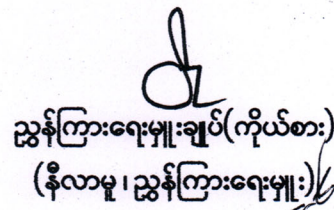 ညွှန်ကြားရေးမှူးချုပ်(ကိုယ်စား)
(နီလာမူ ၊ ညွှန်ကြားရေးမှူး)